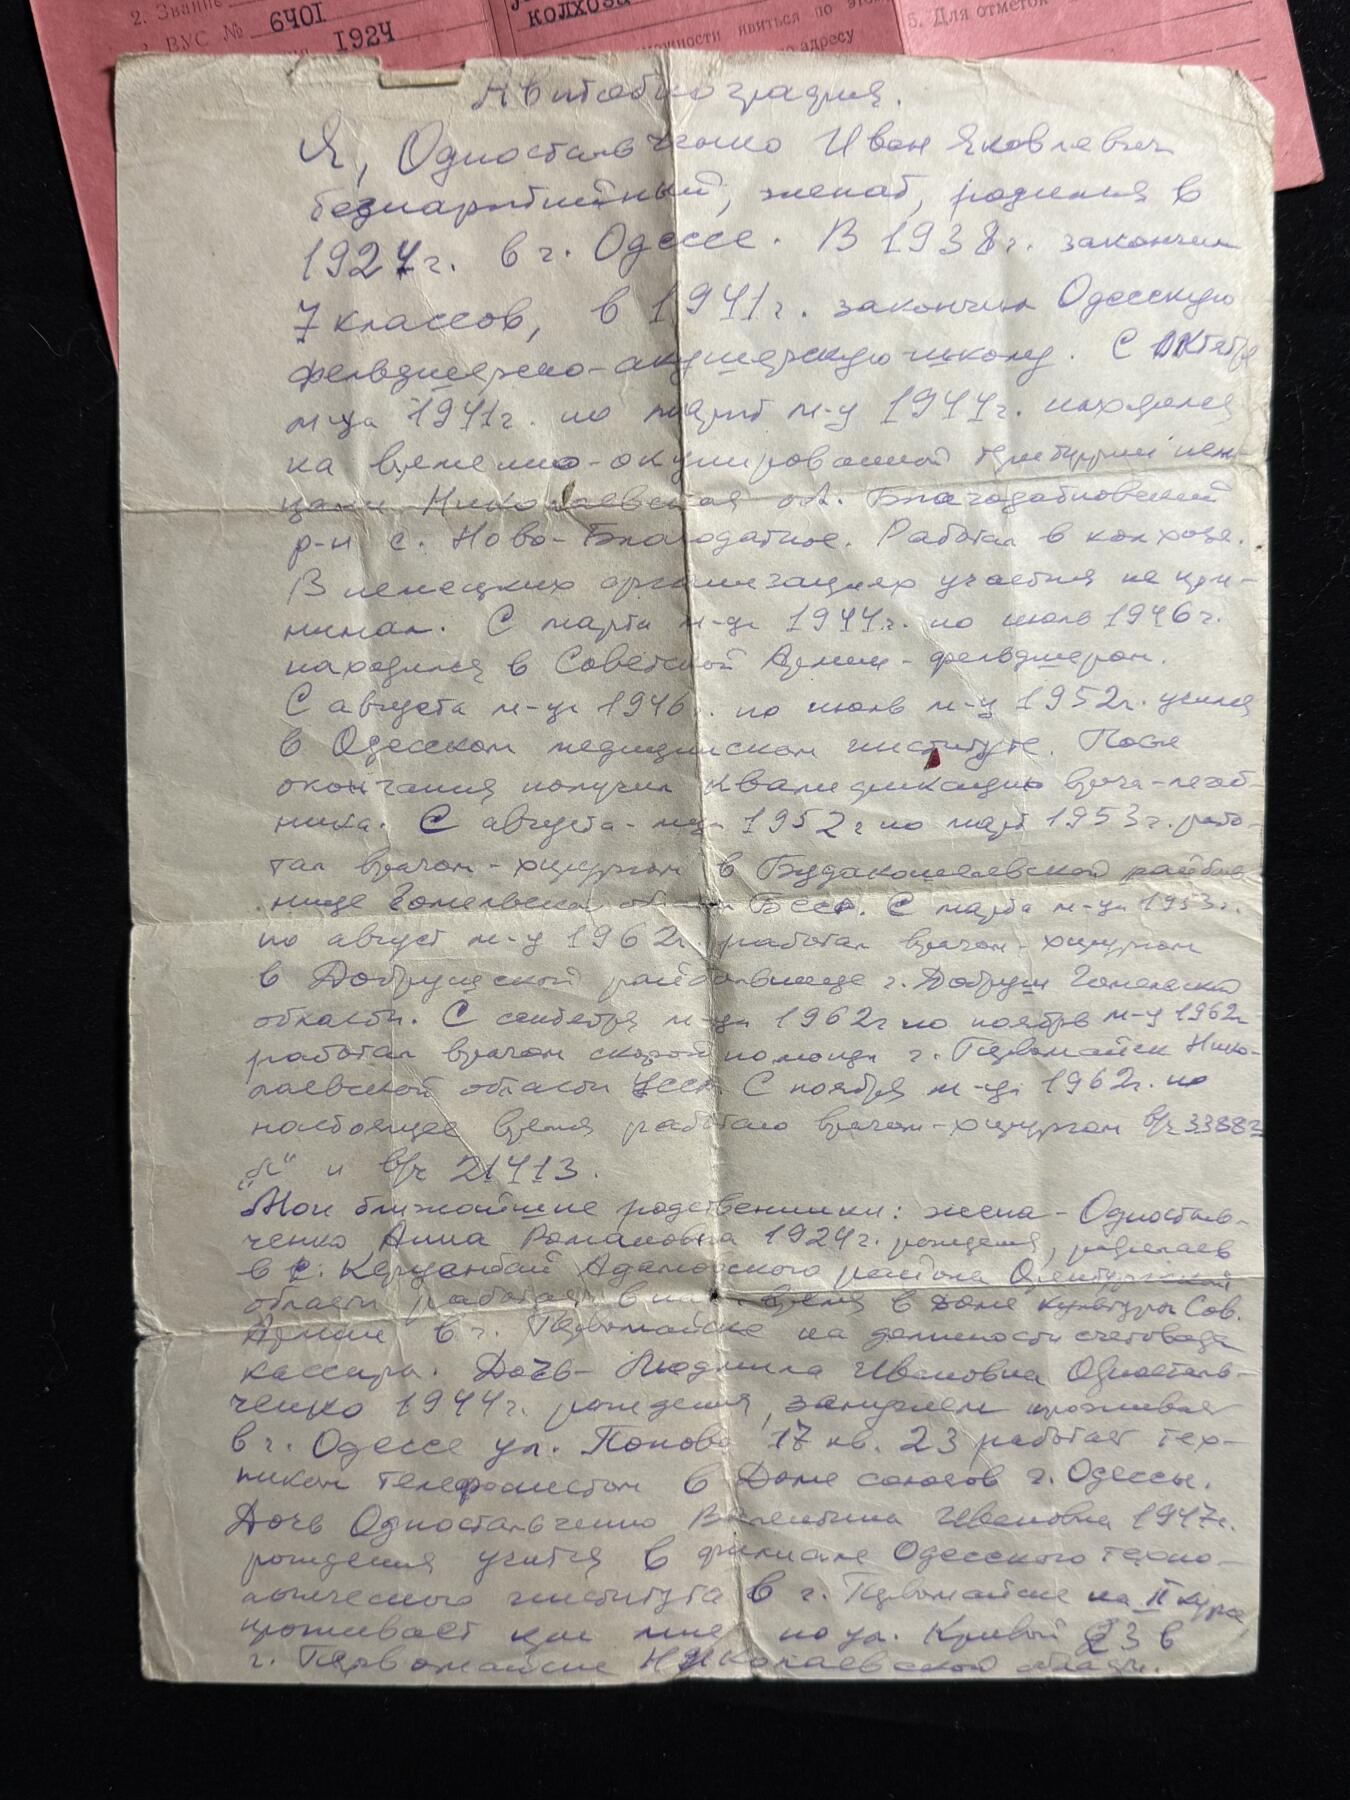 2. Звание
ВУС № 6401
1924
колхоза
можности явиться по этом
адресу
5. Для отметок
Автобиография.
Я, Одностальченко Иван Яковлевич
безпартийный, женат, родился в
1924г. в г. Одессе. В 1938г. закончил
7 классов, в 1941г. закончил Одесскую
фельдшерско-акушерскую школу. С октября
м-ца 1941г. по март м-ц 1944г. находился
на временно-окупированной территории нем-
цами Николаевская обл. Благодатновский
р-н с. Ново-Благодатное. Работал в колхозе.
В немецких организациях участия не при-
нимал. С марта м-ца 1944г. по июль 1946г.
находился в Советской Армии - фельдшером.
С августа м-ца 1946 . по июль м-ц 1952г. учился
в Одесском медицинском институте. После
окончания получил квалификацию врача-лечеб-
ника. С августа- м-ца 1952г по март 1953г. рабо-
тал врачом-хирургом в Будакошелевской райболь
нице Гомельской области БССР. С марта м-ца 1953г.
по август м-ц 1962г. работал врачом-хирургом
в Добрушской райбольнице г. Добруш Гомельской
области. С сентября м-ца 1962г по ноябрь м-ц 1962г
работал врачом скорой помощи г. Первомайск Нико-
лаевской области УССР. С ноября м-ца 1962г. по
настоящее время работаю врачом-хирургом в/ч 33882
и в/ч 21413.
Мои ближайшие родственники: жена - Односталь-
ченко Анна Романовна 1924г. рождения, родилась
в с. Адамовского района Оренбургской
области работает в время в Доме культуры Сов.
Армии в г. Первомайске на должности счетовода
кассира. Дочь- Людмила Ивановна Односталь-
ченко 1944г. рождения, замужем проживает
в г. Одессе ул. Попова 17 кв. 23 работает тех-
ником телефонистом в Доме союзов г. Одессы.
Дочь Одностальченко Валентина Ивановна 1947г.
рождения учится в филиале Одесского техно-
логического института в г. Первомайске на II курсе
проживает при мне по ул. Кривой 23 в
г. Первомайске Николаевской области.